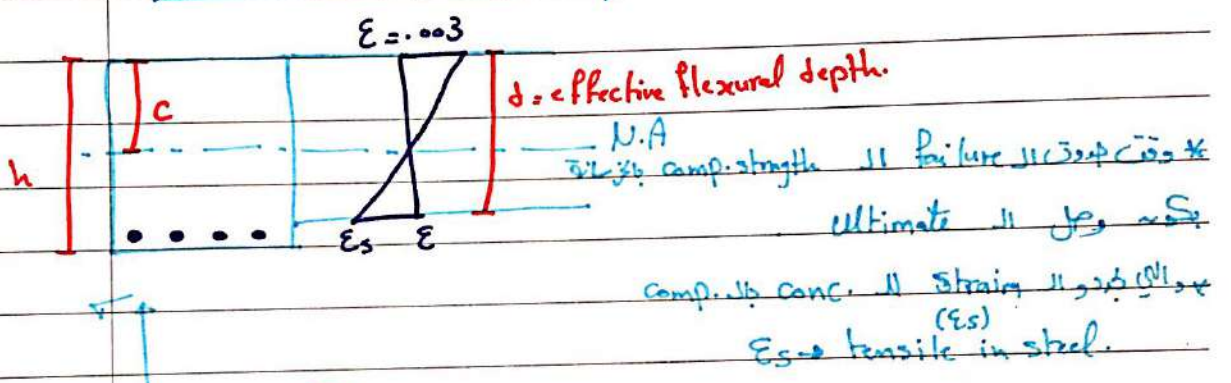 Ɛ = .003
d = effective flexural depth.
c
N.A
h
* وقت حدوث الـ failure الـ comp. strength بالخرسانة
بكون وصل الـ ultimate
الـ strain للـ conc. بالـ comp.
(Ɛs)
Ɛs Ɛ
Ɛs → tensile in steel.